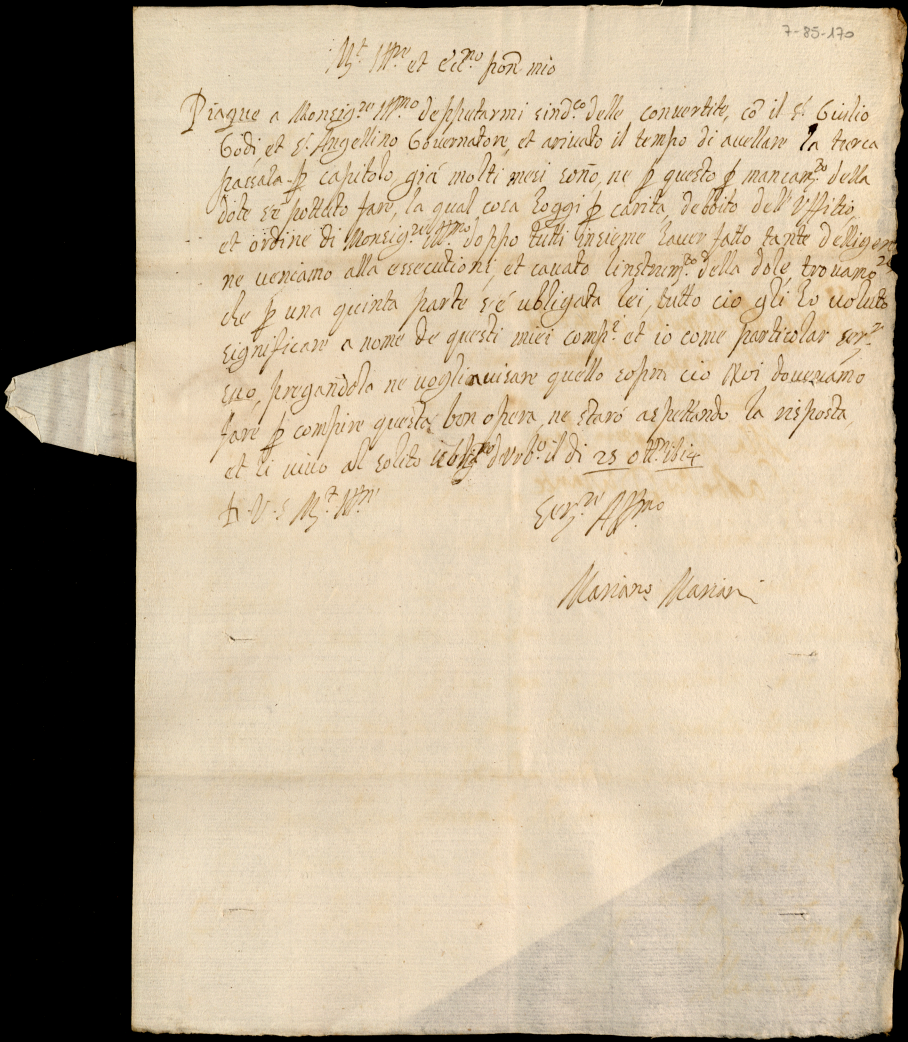 7-85-170
M.t Ill.re et ecc.mo pron mio
Piaque a Monsig.re Ill.mo depputarmi sind.co delle convertite, cõ il s.r Giulio
Godi et s.r Angellino Governatore, et arivato il tempo di avellare la turca
passata p capitolo già molti mesi sono, ne p questo p mancam.to della
dote s'è pottuto fare, la qual cosa hoggi p carità, debbito dell'Uffitio,
et ordine di Monsig.re Ill.mo doppo tutti insieme haver fatto tante delligen
ze
ne veniamo alla essecutioni, et cavato l'instrum.to della dote, trovamo
che p una quinta parte s'é ubligata lei, tutto ciò gli ho voluto
significare a nome de questi miei comp.i et io come particolar ser.re
suo, pregandola ne voglia avisare quello sopra ciò Noi doveriamo
fare p compire questa bon opera, ne starò aspettando la risposta,
et li vivo al solito d'Urb.o il di 25 ott.e 1614
D. V. S. M.t Ill.re
Ser.re Aff.mo
Mariano Mariani